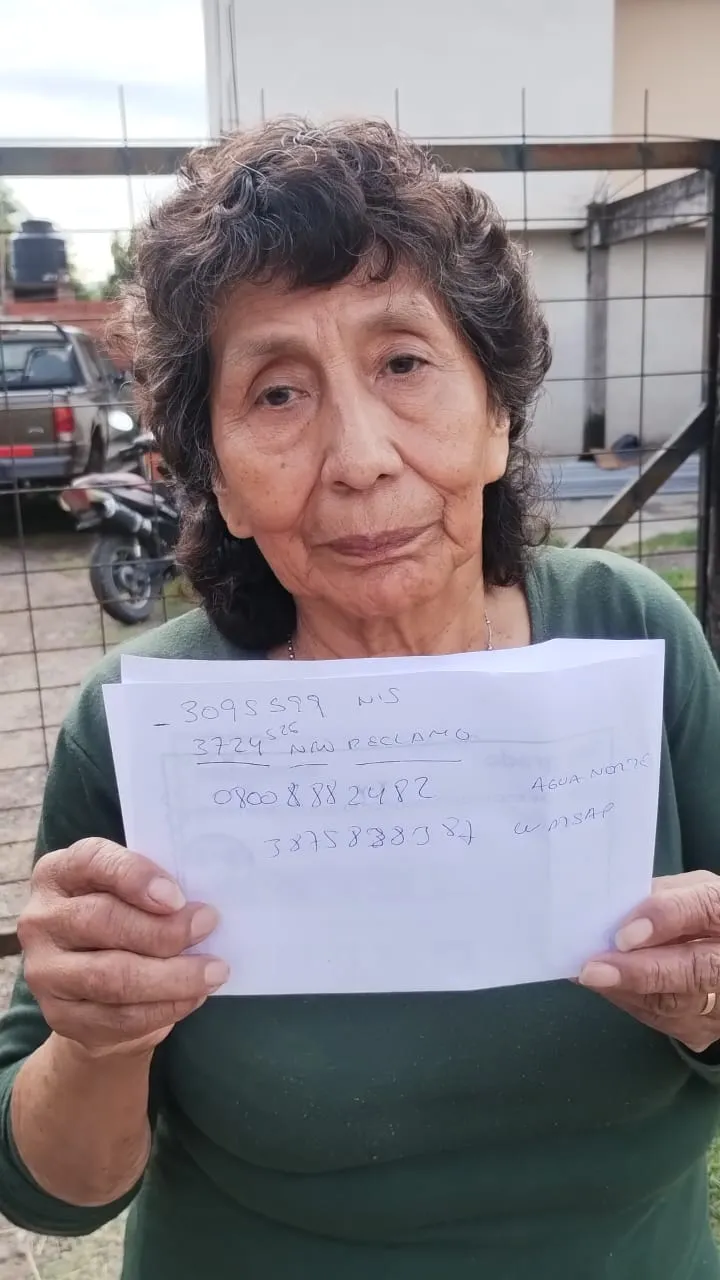 - 3095599 NIS
3724526 NRO RECLAMO
08008882482 AGUA NORTE
3875838387 WATSAP